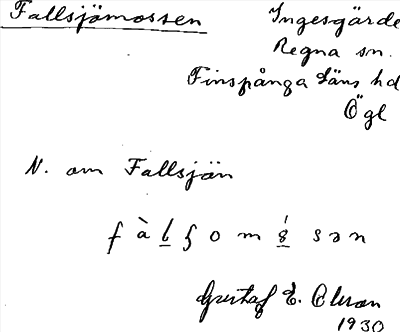 Fallsjömossen
Ingesgärde
Regna sn.
Finspånga läns hd
Ögl
N. om Fallsjön
Gustaf E. Olsson
1930